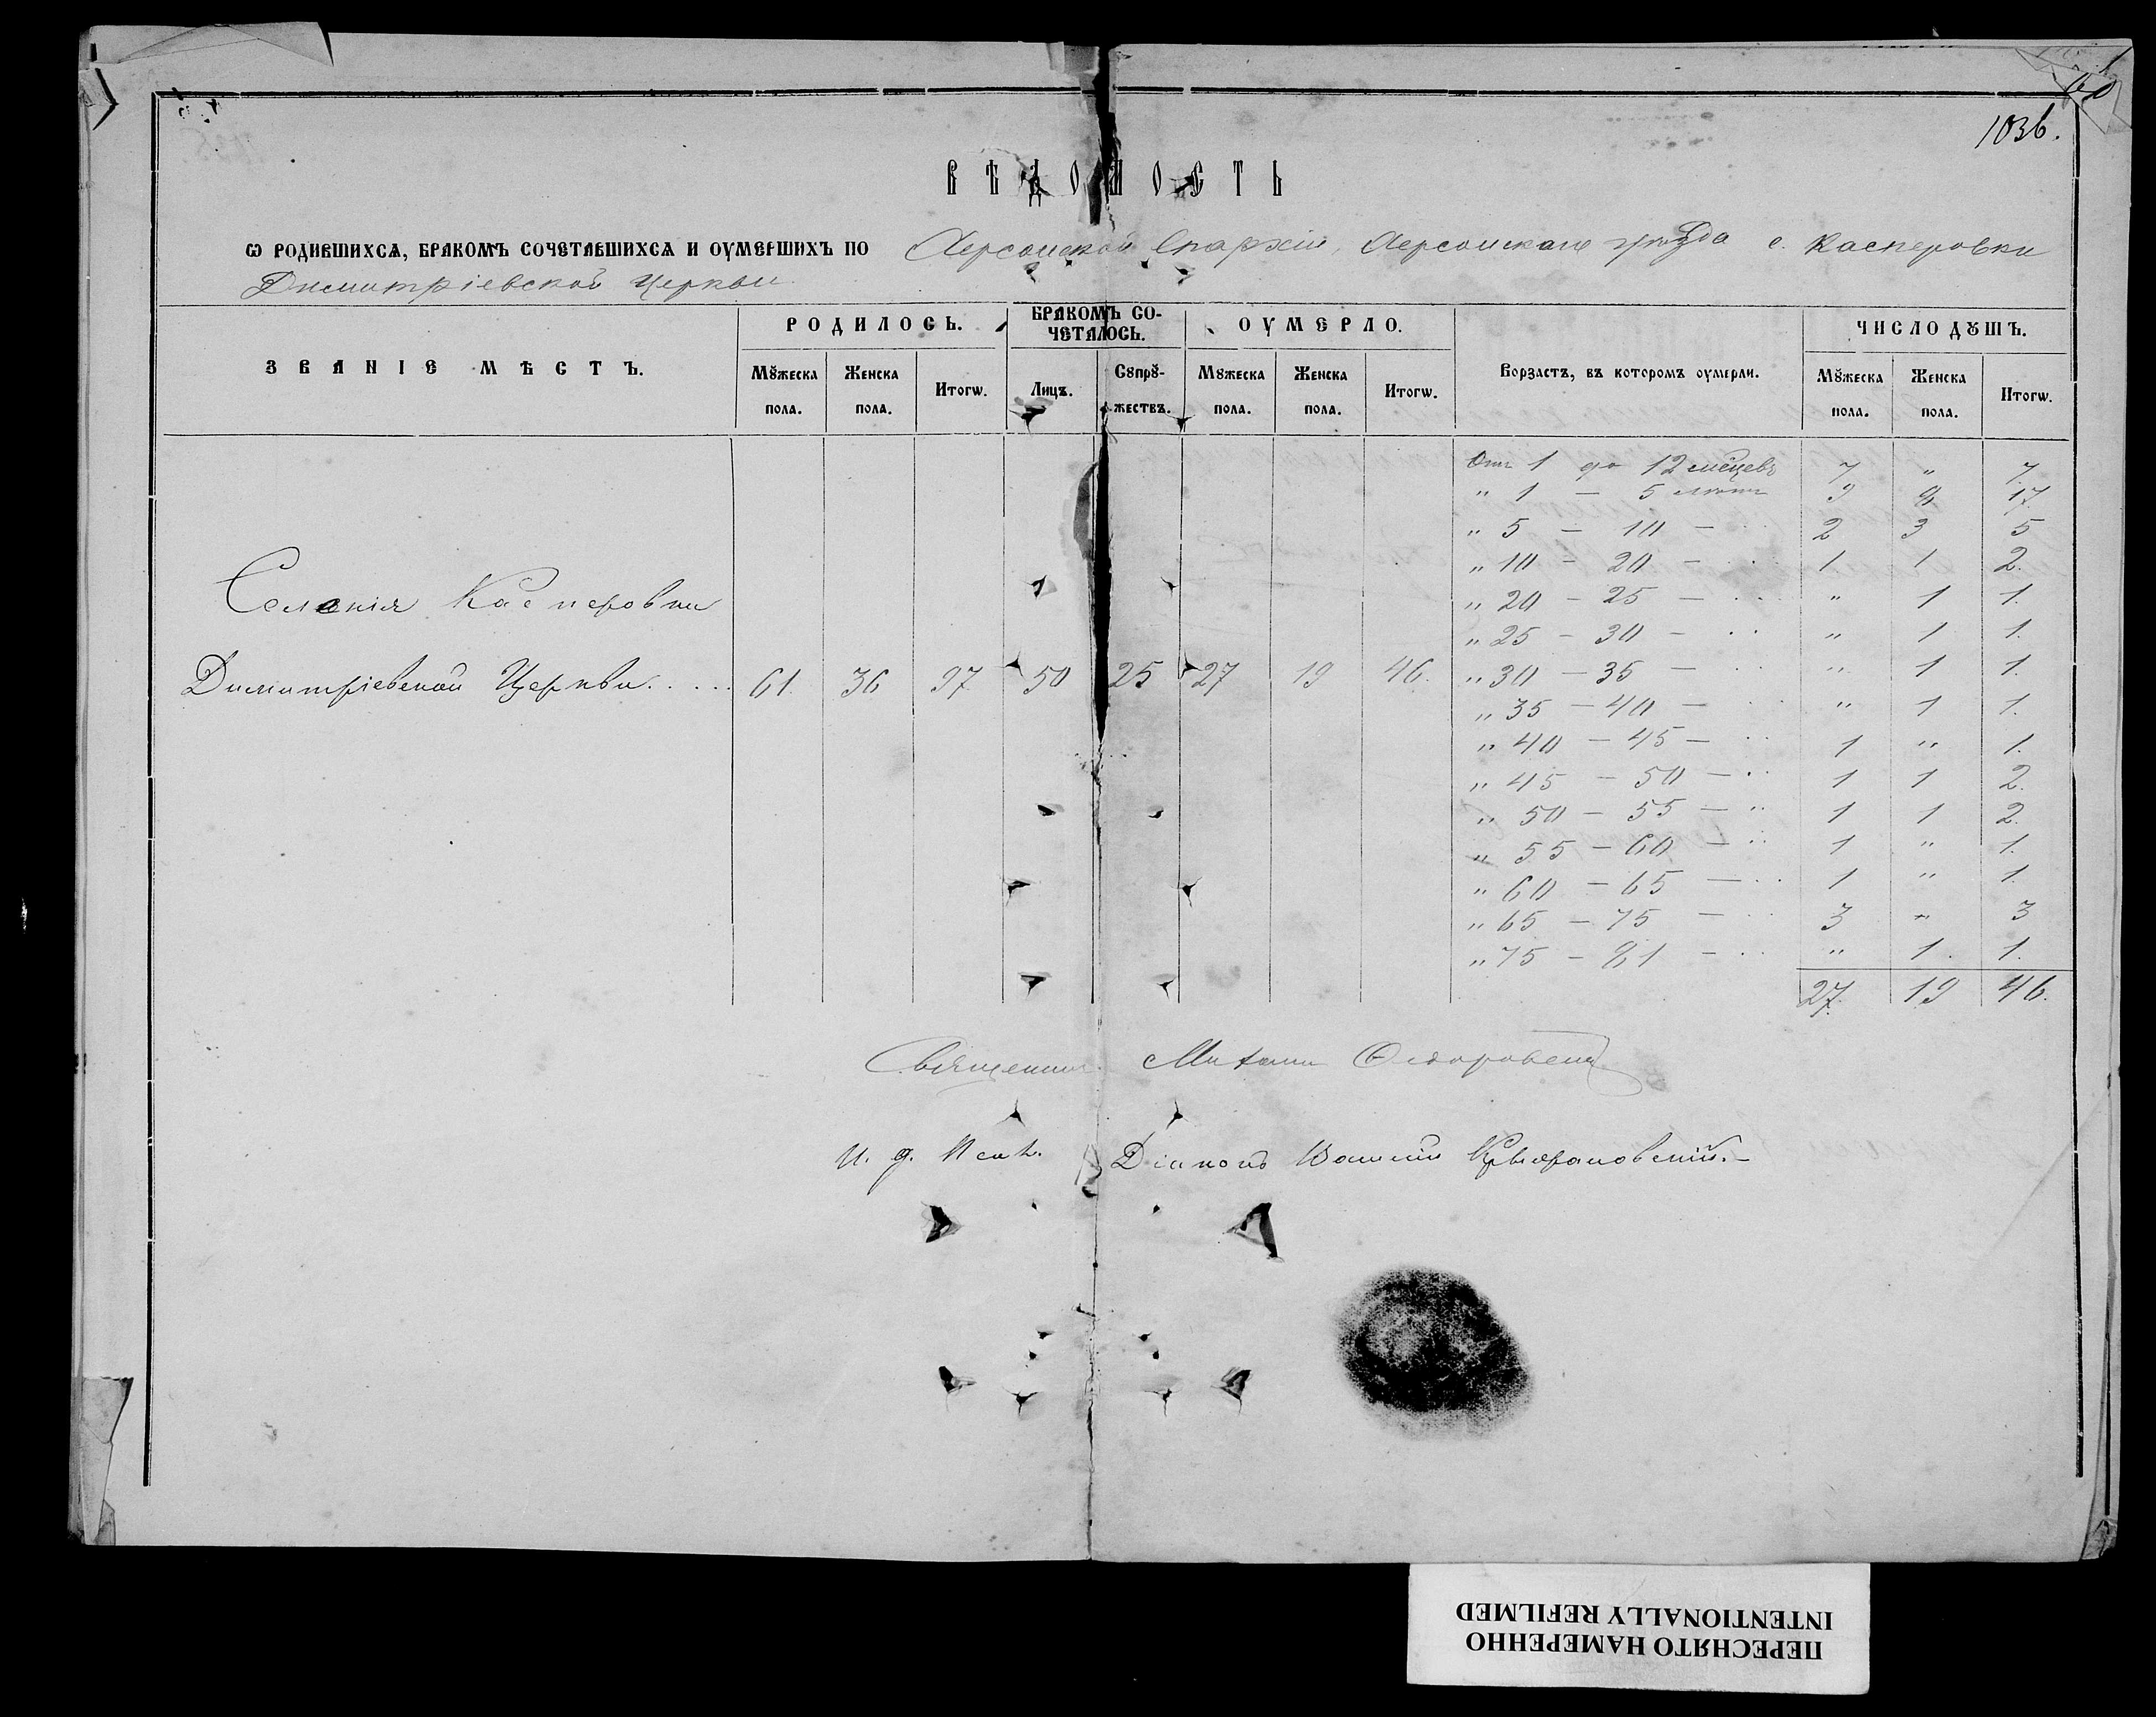 1036.
ВѢДОМОСТЬ
Ѡ РОДИВШИХСѦ, БРАКОМЪ СОЧЕТАВШИХСѦ И ОУМЕРШИХЪ ПО Херсонской Епархіи, Херсонскаго уѣзда с. Касперовки
Димитріевской Церкви
ЗВАНІЕ МѢСТЪ. РОДИЛОСЬ. БРАКОМЪ СО- ОУМЕРЛО. Ворзастъ, въ которомъ оумерли. ЧИСЛО ДꙊШЪ.
ЧЕТАЛОСЬ.
Мꙋжеска Женска Итогѡ. Лицъ. Сꙋпрꙋ- Мꙋжеска Женска Итогѡ. Мꙋжеска Женска Итогѡ.
пола. пола. жествъ. пола. пола. пола. пола.
Отъ 1 до 12 мѣсцевъ 7 " 7.
" 1 — 5 лѣтъ 9 8 17
" 5 — 10 — 2 3 5
" 10 — 20 — 1 1 2.
" 20 — 25 — " 1 1.
" 25 — 30 — " 1 1.
" 30 — 35 — " 1 1.
" 35 — 40 — " 1 1.
" 40 — 45 — 1 " 1.
" 45 — 50 — 1 1 2.
" 50 — 55 — 1 1 2.
" 55 — 60 — 1 " 1.
" 60 — 65 — 1 " 1.
" 65 — 75 — 3 " 3
" 75 — 81 — " 1. 1.
27. 19 46.
Селенія Касперовки
Димитріевской Церкви. . . . 61. 36 97 50 25 27 19 46.
Священник Михаил
И. д. Псал. Діаконъ Василій
ПЕРЕСНЯТО НАМЕРЕННО
INTENTIONALLY REFILMED